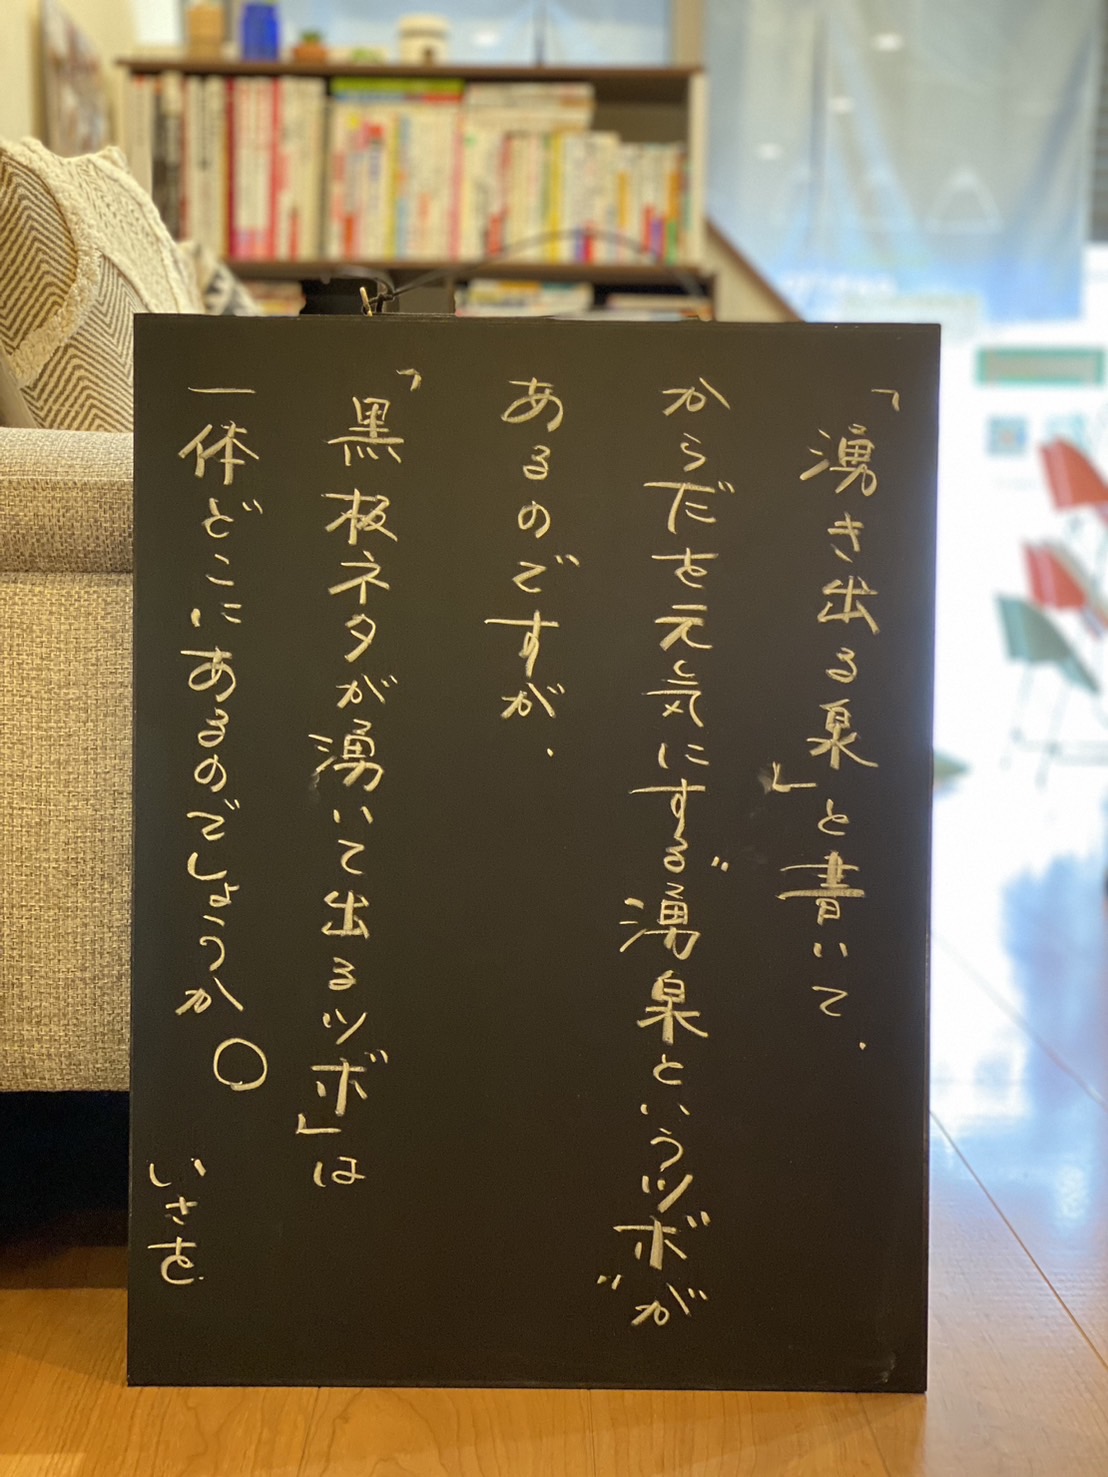 「湧き出る泉」と書いて、
からだを元気にする〝湧泉というツボ〟が
あるのですが、
「黒板ネタが湧いて出るツボ」は
一体どこにあるのでしょうか○
いさを